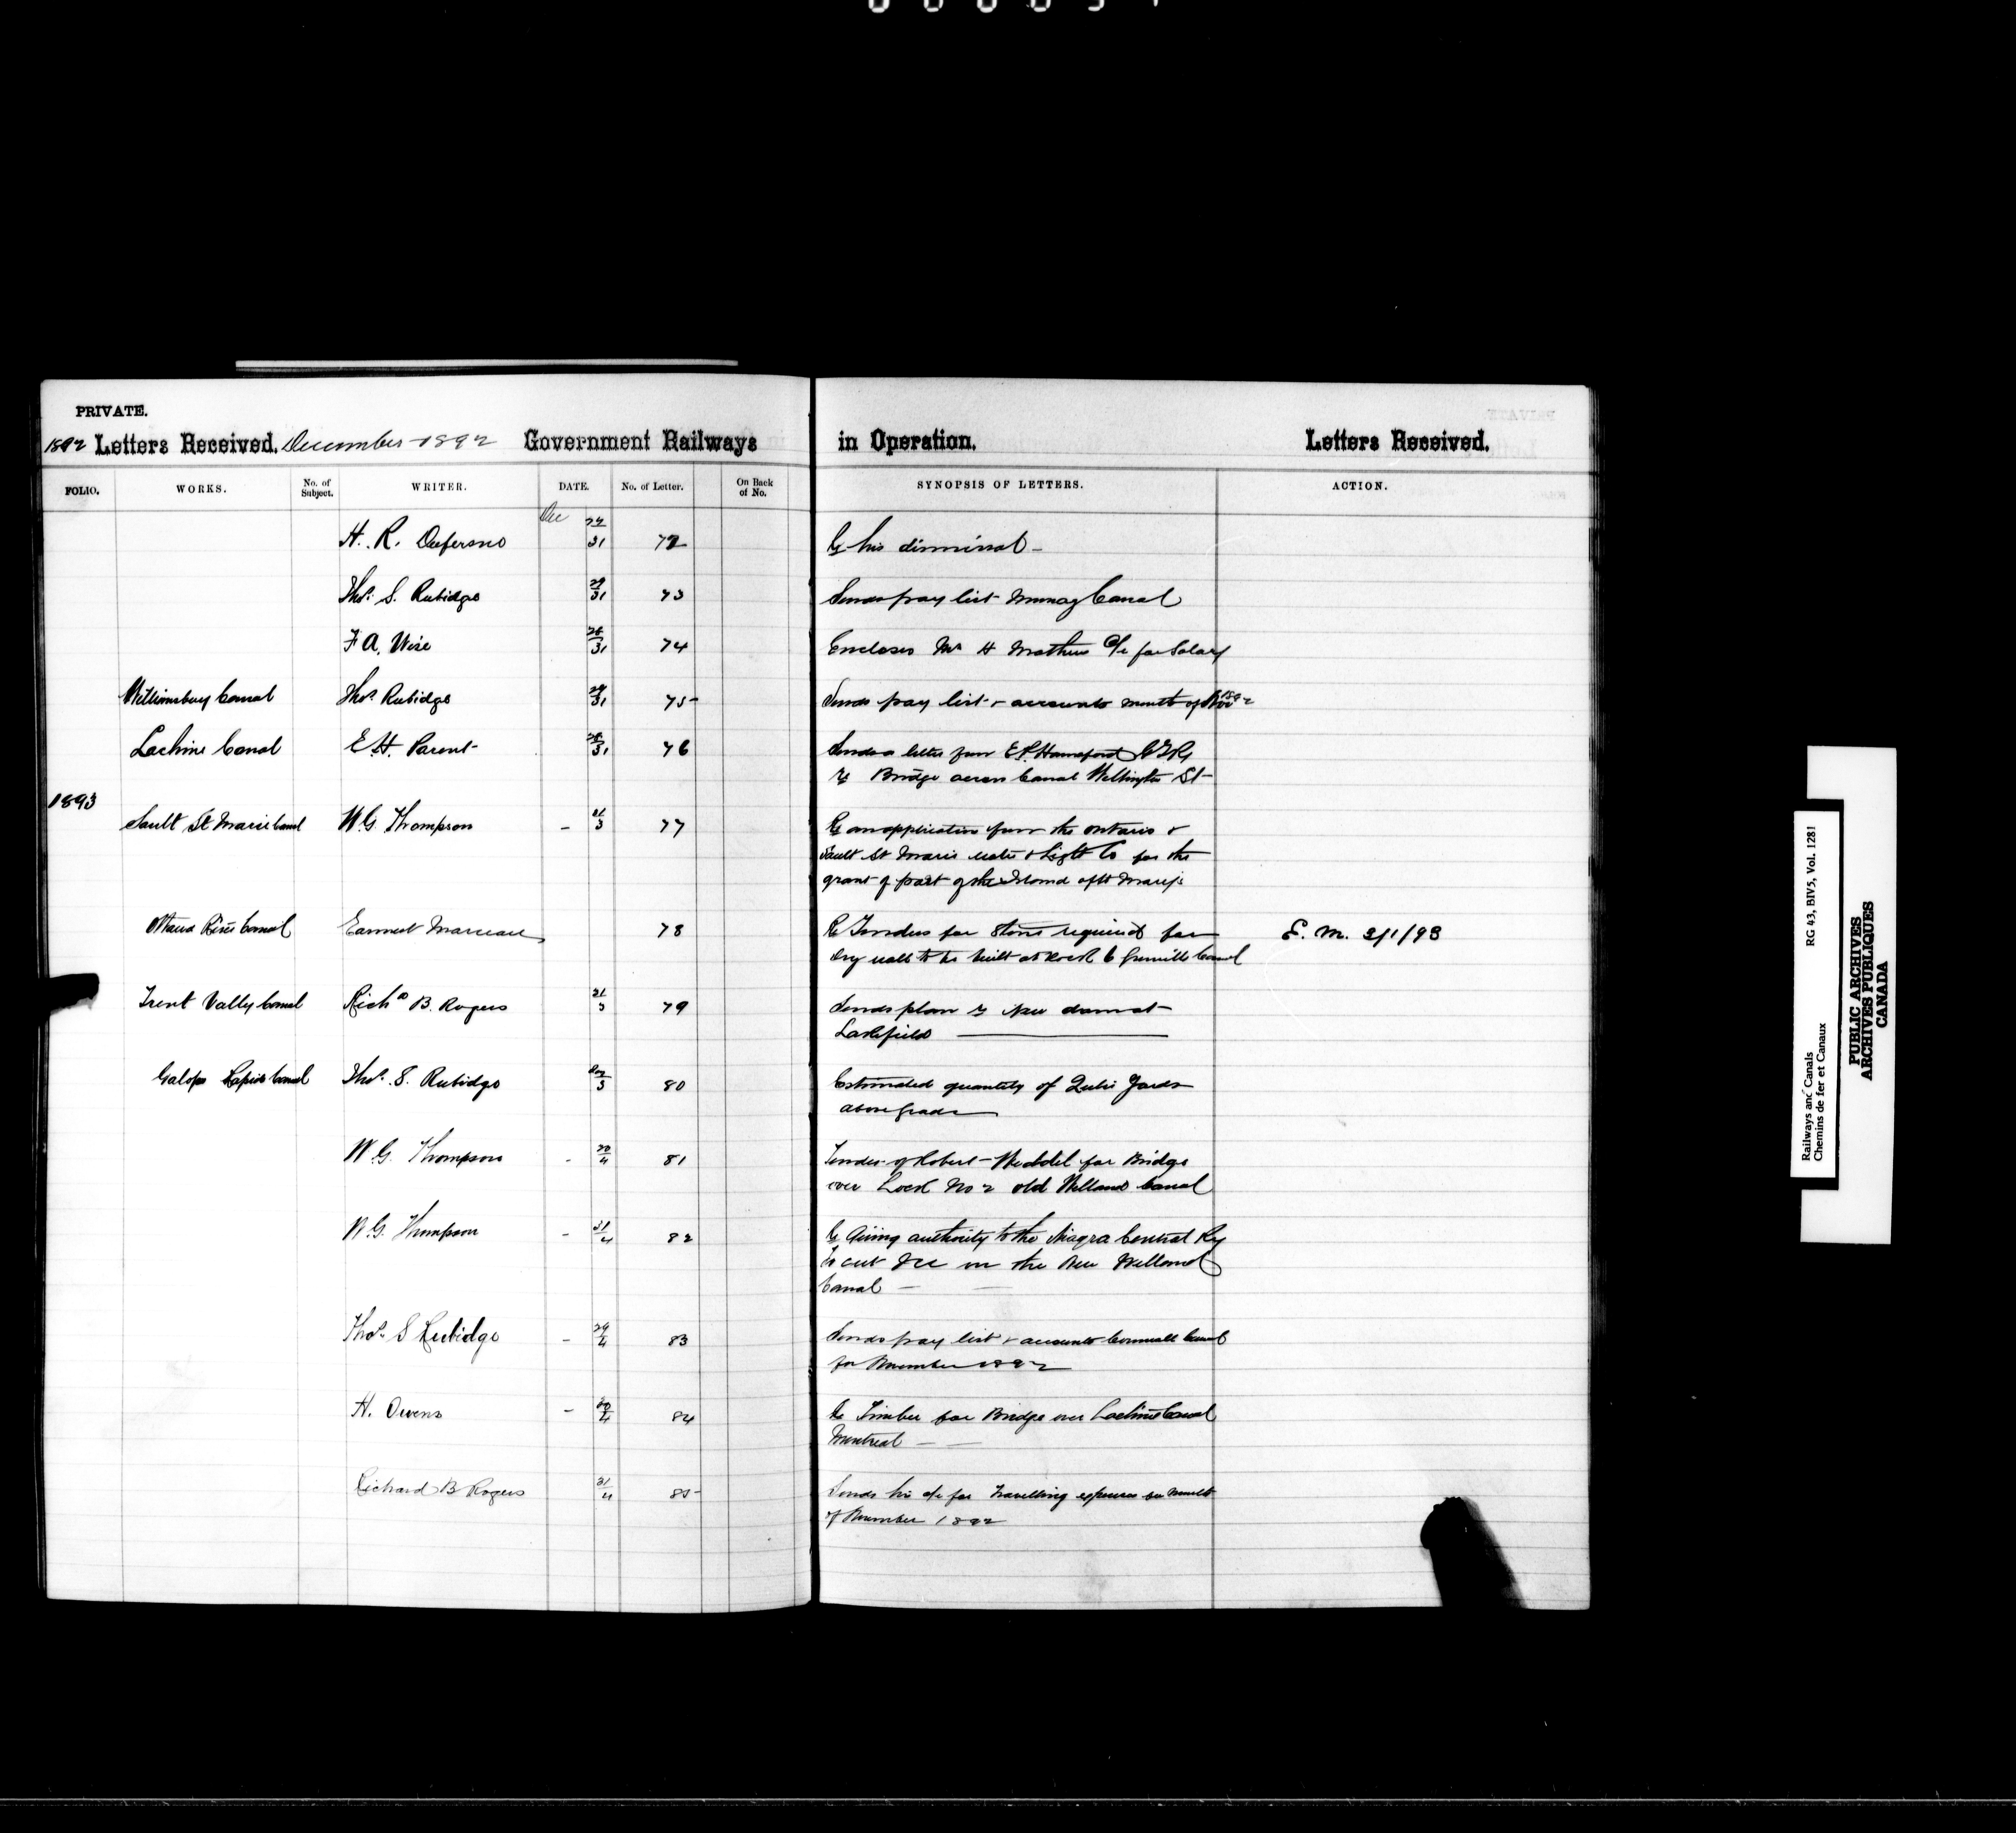 PRIVATE.
1892 Letters Received. December 1892 Government Railways in Operation. Letters Received.
FOLIO. WORKS. No. of Subject. WRITER. DATE. No. of Letter. On Back of No. SYNOPSIS OF LETTERS. ACTION.
Dec
H. R. 31 72 Re his dismissal -
Thos. S. Rubidge 29/31 73 Sends pay list Murray Canal
F A. Wise 28/31 74 Encloses Mr H Mathews a/c for Salary
Williamsburg Canal Thos Rubidge 29/31 75 Sends pay list & accounts month of Nov 1892
Lachine Canal E H. Parent 31 76 Sends a letter from E P. Hannaford G T Ry
re Bridge across Canal Wellington St
1893
Sault St Marie Canal W. G. Thompson - 31/3 77 Re an application from the Ontario &
Sault St Marie Water & Light Co for the
grant of part of the Island of St Marys
Ottawa River Canal Earnest Marceau 78 Re Tenders for Stone required for E. M. 3/1/93
dry wall to be built at Lock 6 Grenville Canal
Trent Valley Canal Richd B. Rogers 31/3 79 Sends plan re New dam at
Lakefield
Galops Rapids Canal Thos. S. Rubidge 3 80 Estimated quantity of Cubic Yards
above grade
W. G. Thompson - 30/4 81 Tender of Robert Weddel for Bridge
over Lock No 2 old Welland Canal
W. G. Thompson - 31/4 82 Re Giving authority to the Niagra Central Ry
to cut Ice on the New Welland
Canal -
Thos. S Rubidge - 29/4 83 Sends pay list & accounts Cornwall Canal
for November 1892
H. Owens - 30/4 84 Re Timber for Bridge over Lachine Canal
Montreal -
Richard B Rogers 31/4 85 Sends his a/c for Travelling expenses for month
of November 1892
Railways and Canals
Chemins de fer et Canaux
RG 43, BIV5, Vol. 1281
PUBLIC ARCHIVES
ARCHIVES PUBLIQUES
CANADA